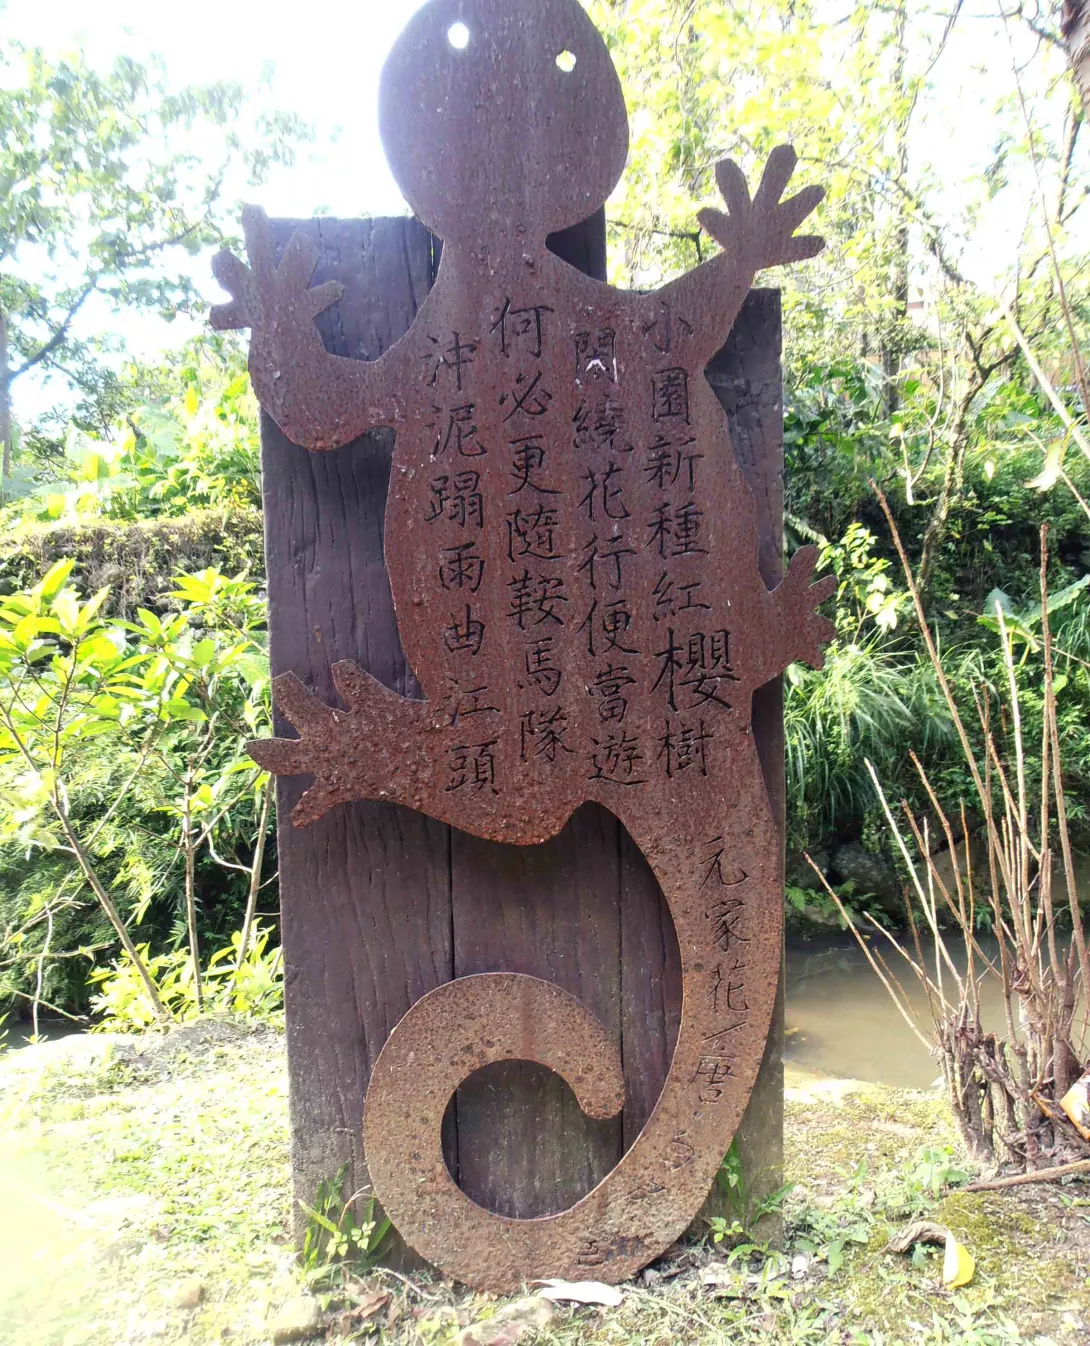 小園新種紅櫻樹
閑繞花行便當遊
何必更隨鞍馬隊
沖泥蹋雨曲江頭
元家花 唐